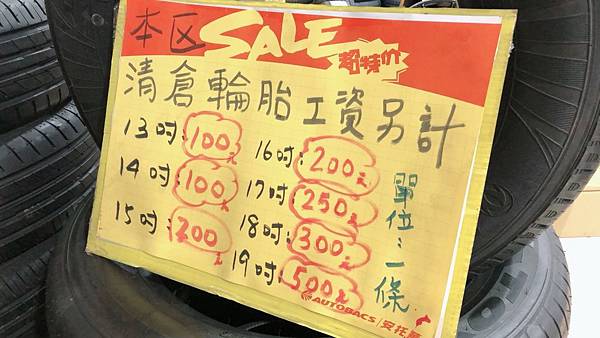 本区 SALE 超特价
清倉輪胎工資另計
13吋:100元
14吋:100元
15吋:200元
16吋:200元
17吋:250元
18吋:300元
19吋:500元
單位:一條
AUTOBACS 安托